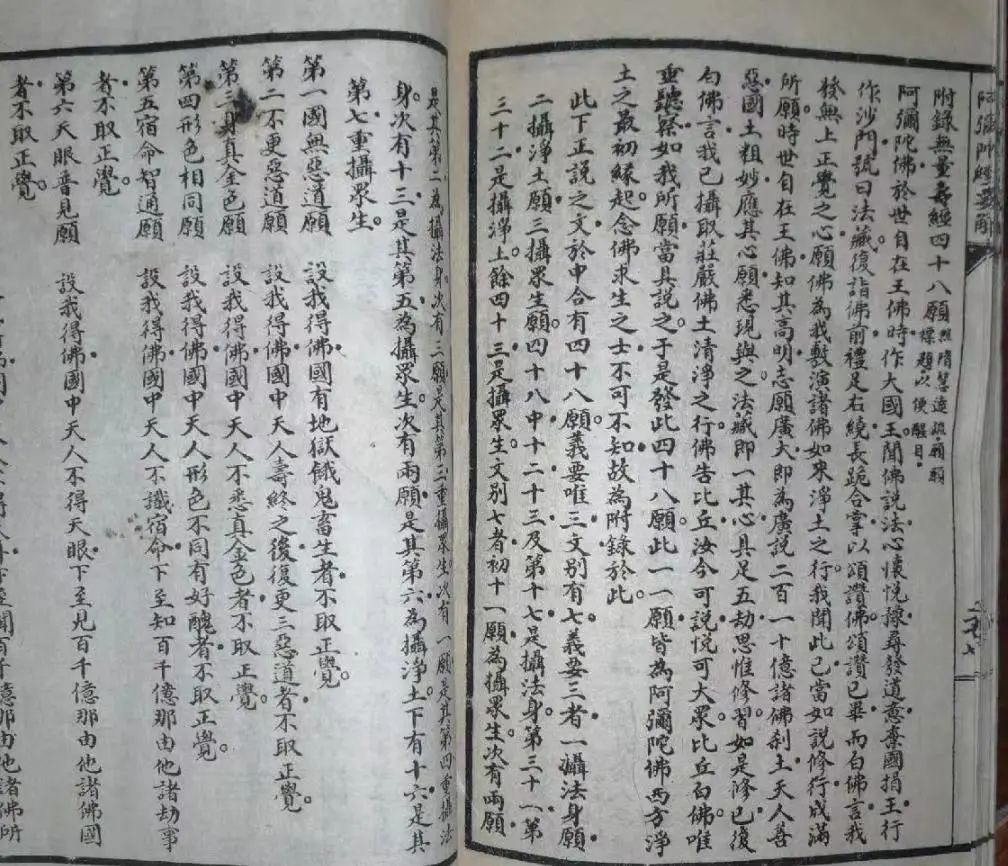 附錄無量壽經四十八願 照隋慧遠疏每願標題以便醒目
阿彌陀佛於世自在王佛時作大國王聞佛說法心懷悅豫尋發道意棄國捐王行
作沙門號曰法藏復詣佛前禮足右繞長跪合掌以頌讚佛頌讚已畢而白佛言我
發無上正覺之心願佛為我敷演諸佛如來淨土之行我聞此已當如說修行成滿
所願時世自在王佛知其高明志願廣大即為廣說二百一十億諸佛刹土天人善
惡國土粗妙應其心願悉現與之法藏即一其心具足五劫思惟修習如是修已復
白佛言我已攝取莊嚴佛土清淨之行佛告比丘汝今可說悅可大眾比丘白佛唯
垂聽察如我所願當具說之于是發此四十八願此一一願皆為阿彌陀佛西方淨
土之最初緣起念佛求生之士不可不知故為附錄於此
此下正說之文於中合有四十八願義要唯三文別有七義要三者一攝法身願
二攝淨土願三攝眾生願四十八中十二十三及第十七是攝法身第三十一第
三十二是攝淨土餘四十三是攝眾生文別七者初十一願為攝眾生次有兩願
是其第二為攝法身次有三願是其第三重攝眾生次有一願是其第四重攝法
身次有十三是其第五為攝眾生次有兩願是其第六為攝淨土下有十六是其
第七重攝眾生
第一國無惡道願 設我得佛國有地獄餓鬼畜生者不取正覺
第二不更惡道願 設我得佛國中天人壽終之後復更三惡道者不取正覺
第三身真金色願 設我得佛國中天人不悉真金色者不取正覺
第四形色相同願 設我得佛國中天人形色不同有好醜者不取正覺
第五宿命智通願 設我得佛國中天人不識宿命下至知百千億那由他諸劫事
者不取正覺
第六天眼普見願 設我得佛國中天人不得天眼下至見百千億那由他諸佛國
者不取正覺
阿彌陀經要解